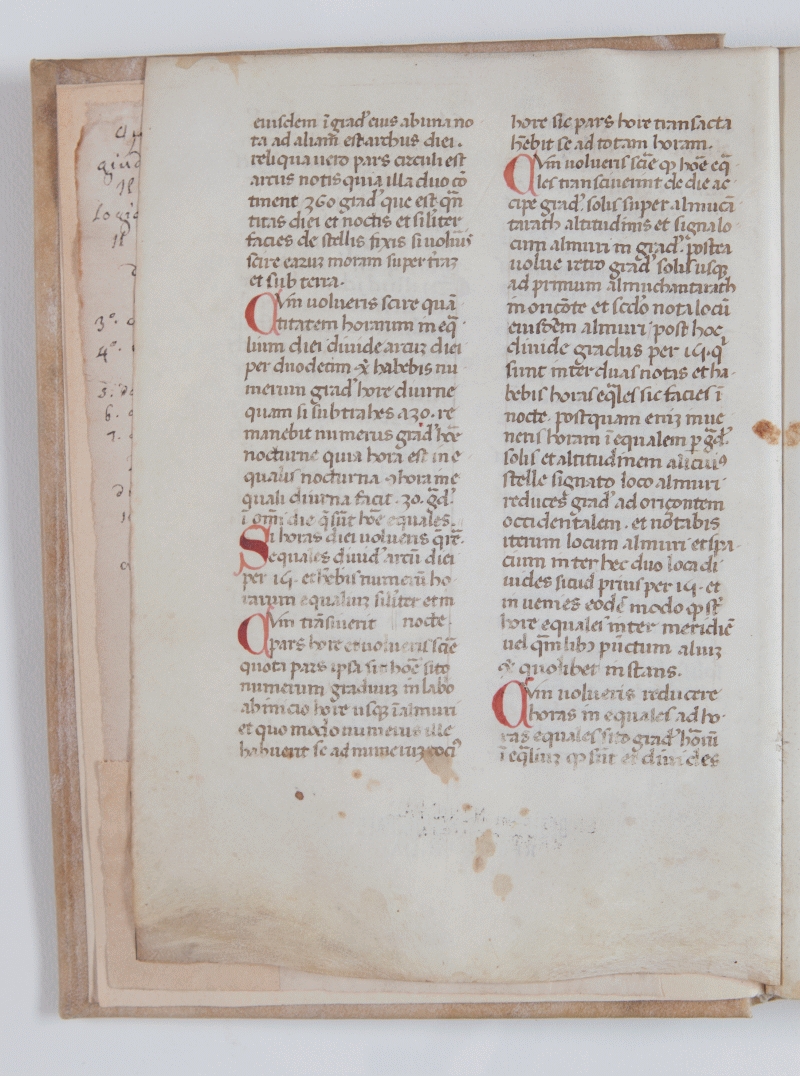 eiusdem ĩ grad̉ eius ab una no
ta ad aliam̃ est archus diei .
reliqua uero pars circuli est
arcus notis quia illa duo cõ
tinent 360 grad̉ que est qñ
titas diei et noctis et siliter
facies de stellis fixis si uolũis
scire earuꝫ moram super traꝫ
et sub terra .
Cvm uolueris scire quã
titatem horarum in eq̃
lium diei diuide arcuꝫ diei
per duodecim et habebis nu
merum grad̉ hore diurne
quam si subtrahes a 30 . re
manebit numerus grad̉ hõe
nocturne quia hora est ine
qualis nocturna et hora ine
quali diurna facit . 30 . g̃d̉
ĩ om̃i die q̃ sũt hõe equales .
Si horas diei uolueris q̃re .
equales diuid̉ arcũ diei
per 15 . et hẽbis numerũ ho
rarum equaliuꝫ siliter et in
Cvm trãsiuerit nocte .
pars hore et uolueris scĩe
quota pars ipsa sit hõe sito
numerum graduuꝫ in labõ
ab inicio hore usqꝫ ĩ almuri
et quo modo numerus ille
habuerit se ad numeruꝫ toci9
hore sic pars hore transacta
hẽbit se ad totam horam .
Cvm uolueris scĩe qꝫ hõe eq̃
les transciuerint de die ac
cipe grad̉ solis super almucã
tarath altitudinis et signa lo
cum almuri in grad̉ . postea
uolue retro grad̉ solis usqꝫ
ad primum almuchantarath
in oricõte et scd̃o nota locũ
eiusdem almuri post hoc
diuide gradus per 15 . q̃
sunt inter duas notas et ha-
bebis horas eq̃les sic facies ĩ
nocte . postquam eniꝫ inue
neris horam ĩequalem p g̃d̉.
solis et altitudinem alicui9
stelle signato loco almuri
reduces grad̉ ad oricontem
occidentalem . et nõtabis
iterum locum almuri et spa
cium inter hec duo loca di
uides sicud prius per 15 . et
inuenies eodẽ modo qꝫ st̃
hore equales inter meridiẽ
uel qm̃libꝫ pũctum aliuꝫ
quolibet instans .
Cvm uolueris reducere
horas in equales ad ho-
ras equales sito grad̉ horũ
ĩ eq̃liuꝫ qꝫ sũt et diuides